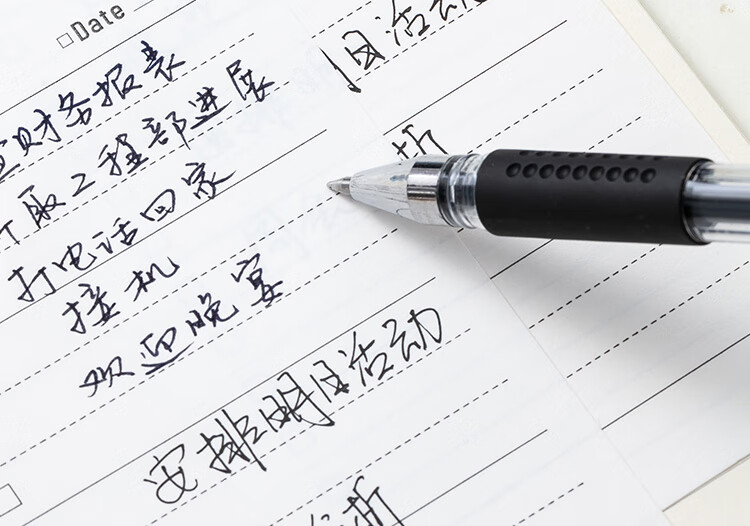 □Date
财务报表
服工程部进展
打电话回家
接机
欢迎晚宴
安排明日活动
日活动
析
析